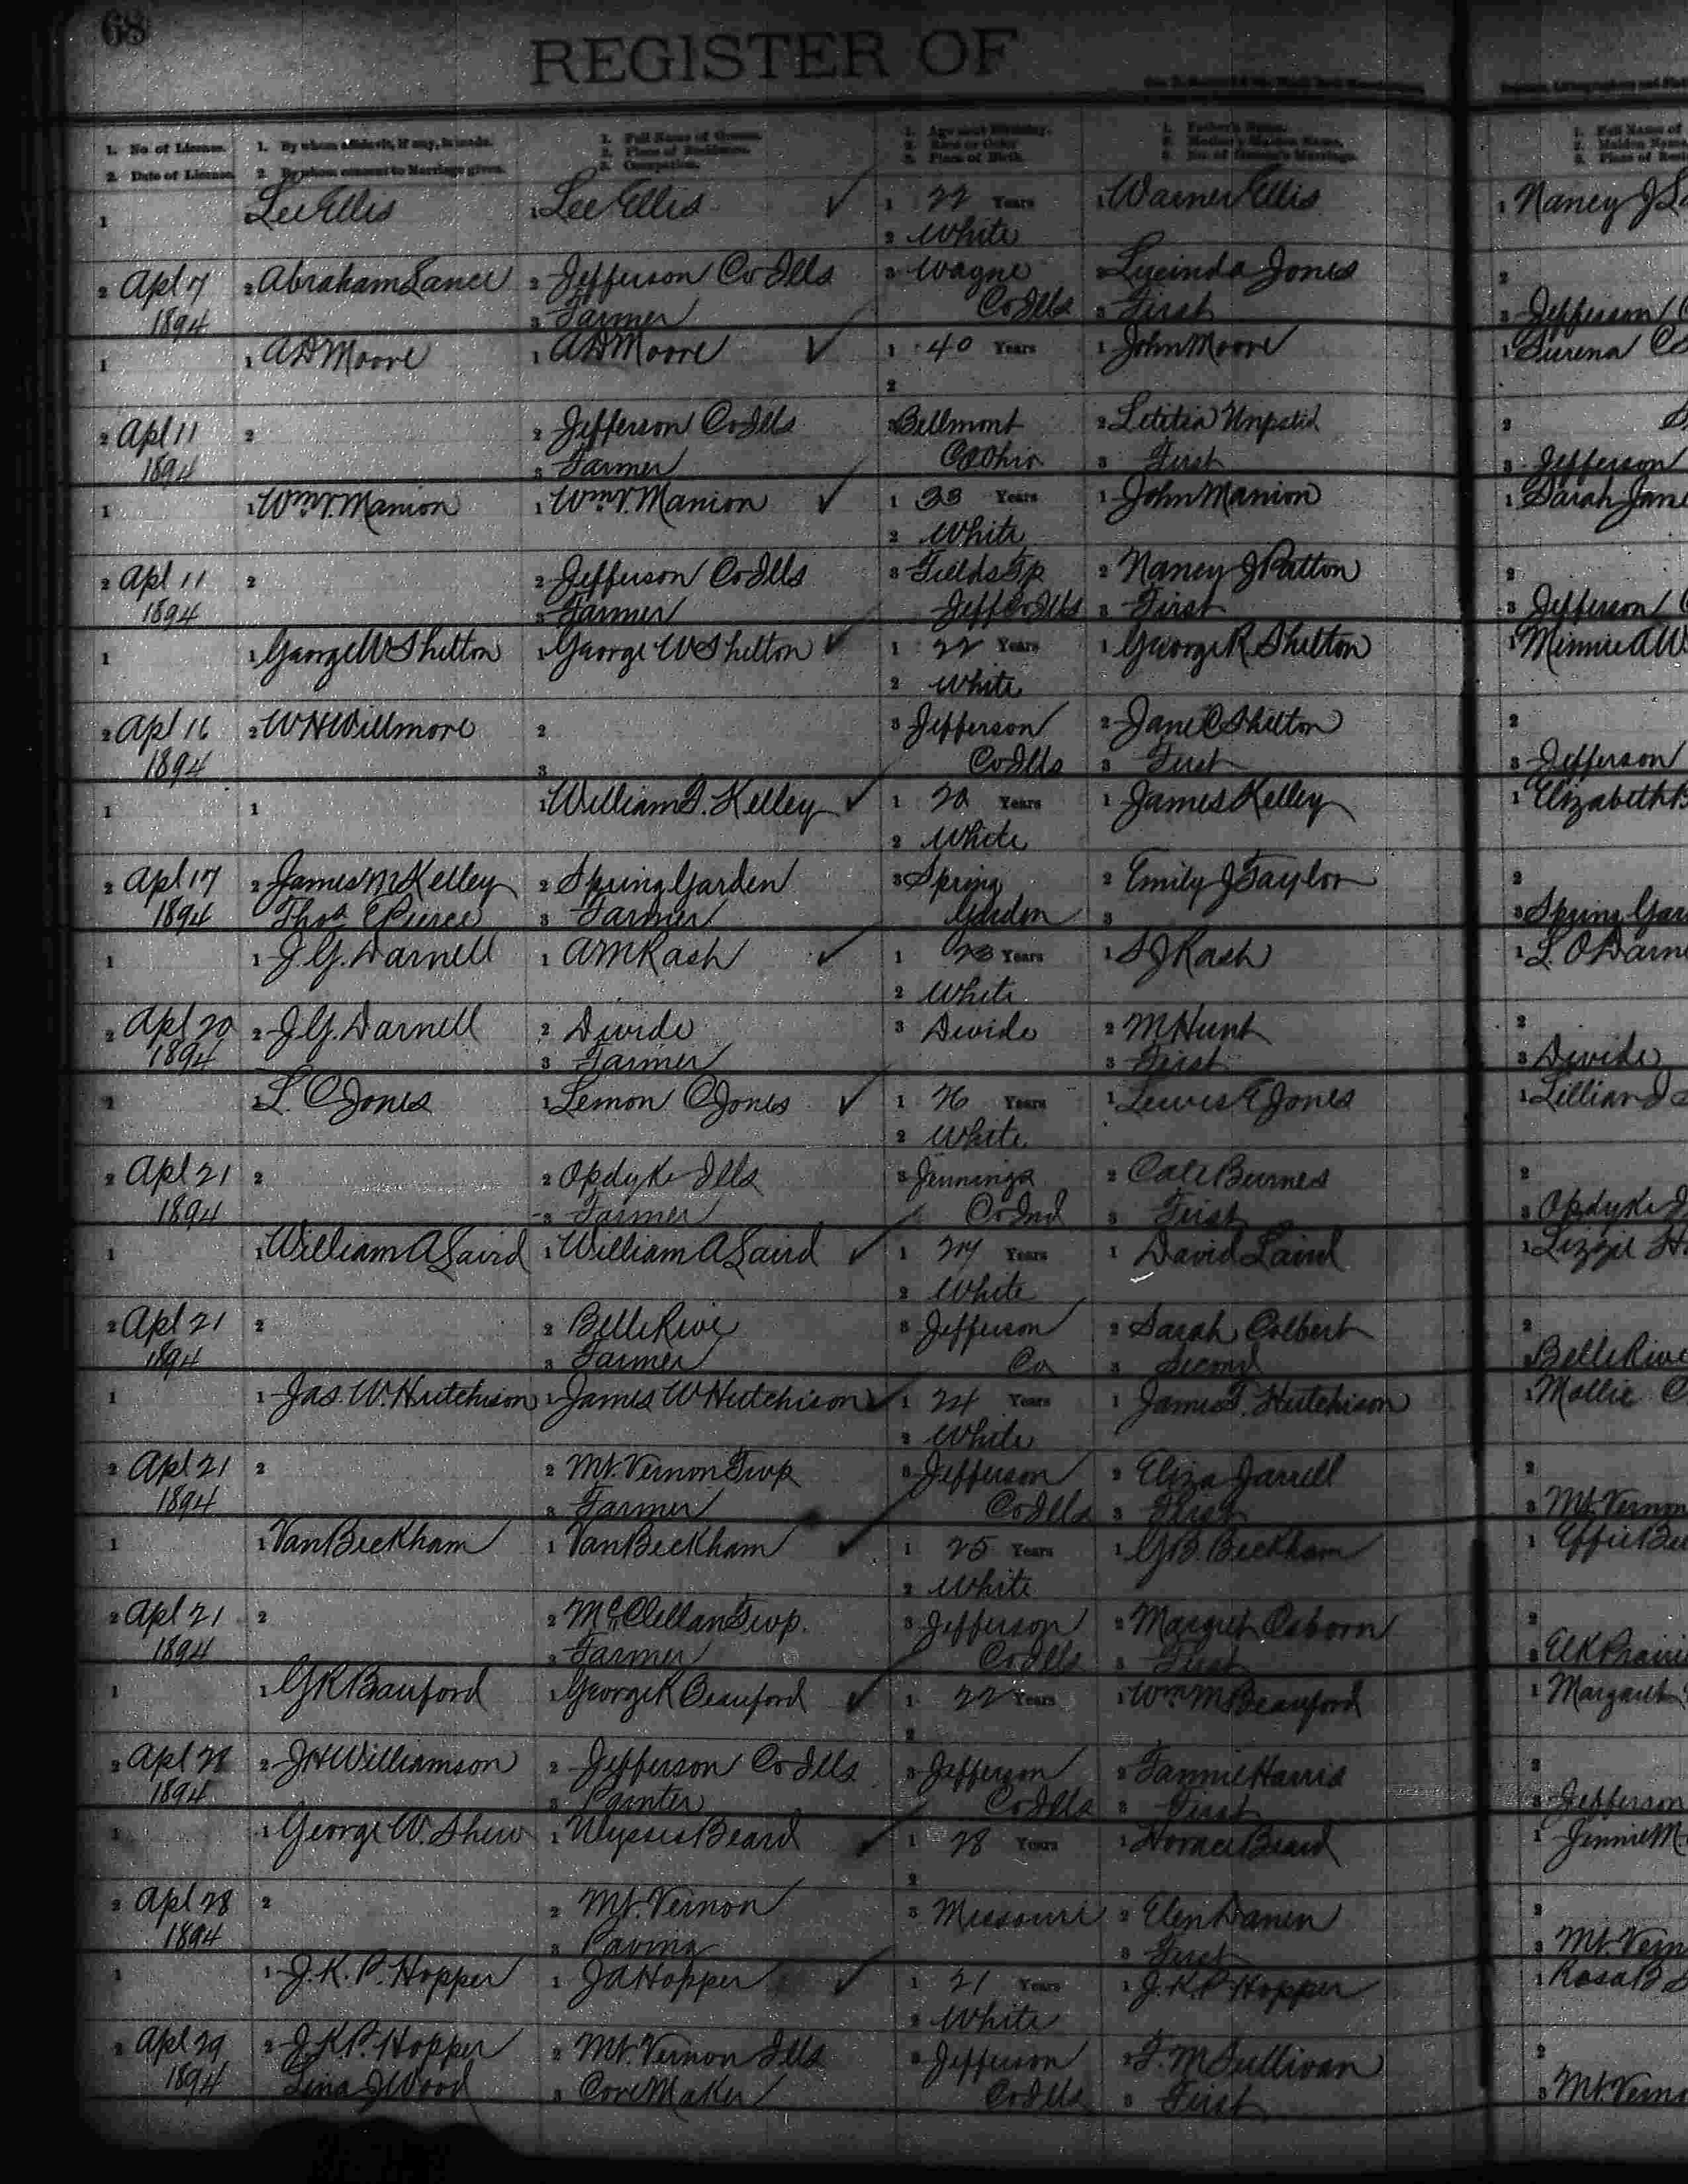 68
REGISTER OF
1. No. of License. 1. By whom affidavit, if any, is made. 1. Full Name of Groom. 1. Age next Birthday. 1. Father's Name. 1. Full Name of
2. Place of Residence. 2. Race or Color 2. Mother's Maiden Name. 2. Maiden Name
2. Date of License. 2. By whom consent to Marriage given. 3. Occupation. 3. Place of Birth. 3. No. of Groom's Marriage. 3. Place of
1 Lee Ellis 1 Lee Ellis ✓ 1 22 Years 1 Warner Ellis 1 Nancy J
2 White
2 Apl 7 2 Abraham Lance 2 Jefferson Co Ills 3 Wayne 2 Lucinda Jones 2
1894 3 Farmer Co Ills 3 First 3 Jefferson
1 1 AD Moore 1 AD Moore ✓ 1 40 Years 1 John Moore 1 Surena
2
2 Apl 11 2 2 Jefferson Co Ills 3 Bellmont 2 Letitia 2
1894 3 Farmer Co Ohio 3 First 3 Jefferson
1 1 Wm V. Manion 1 Wm V. Manion ✓ 1 23 Years 1 John Manion 1 Sarah Jane
2 White
2 Apl 11 2 2 Jefferson Co Ills 3 Fields Tp 2 Nancy J Patton 2
1894 3 Farmer Jeff Co Ills 3 First 3 Jefferson
1 1 George W Shelton 1 George W Shelton ✓ 1 22 Years 1 George R. Shelton 1 Minnie A
2 White
2 Apl 16 2 W H Willmore 2 3 Jefferson 2 Jane C Shelton 2
1894 3 Co Ills 3 First 3 Jefferson
1 1 1 William T. Kelley ✓ 1 20 Years 1 James Kelley 1 Elizabeth
2 White
2 Apl 17 2 James M Kelley 2 Spring Garden 3 Spring 2 Emily J Taylor 2
1894 Thos E Pierce 3 Farmer Garden 3 3 Spring Gar
1 1 J. G. Darnell 1 AM Rash ✓ 1 23 Years 1 S J Rash 1 L. O Darne
2 White
2 Apl 20 2 J. G. Darnell 2 Divide 3 Divide 2 M Hunt 2
1894 3 Farmer 3 First 3 Divide
1 1 L. C Jones 1 Lemon C Jones ✓ 1 26 Years 1 Lewis E Jones 1 Lillian
2 White
2 Apl 21 2 2 Opdyke Ills 3 Jennings 2 Cale Burnes 2
1894 3 Farmer Co Ind 3 First 3 Opdyke
1 1 William A Laird 1 William A Laird ✓ 1 24 Years 1 David Laird 1 Lizzie
2 White
2 Apl 21 2 2 Belle Rive 3 Jefferson 2 Sarah Colbert 2
1894 3 Farmer Co 3 Second 3 Belle Rive
1 1 Jas. W. Hutchison 1 James W Hutchison ✓ 1 24 Years 1 James T. Hutchison 1 Mollie
2 White
2 Apl 21 2 2 Mt. Vernon Twp 3 Jefferson 2 Eliza Jarrell 2
1894 3 Farmer Co Ills 3 First 3 Mt. Vernon
1 1 Van Beckham 1 Van Beckham ✓ 1 25 Years 1 G B. Beckham 1 Effie
2 White
2 Apl 21 2 2 McClellan Twp. 3 Jefferson 2 Margret Osborn 2
1894 3 Farmer Co Ills 3 First 3 Elk Prairie
1 1 G R Bauford 1 George R Beauford ✓ 1 22 Years 1 Wm M Beauford 1 Margaret
2
2 Apl 28 2 J H Williamson 2 Jefferson Co Ills 3 Jefferson 2 Fannie Harris 2
1894 3 Painter Co Ills 3 First 3 Jefferson
1 1 George W. Shew 1 Ulysses Beard ✓ 1 28 Years 1 Horace Beard 1 Jennie M.
2
2 Apl 28 2 2 Mt. Vernon 3 Missouri 2 Elen Danen 2
1894 3 Paving 3 First 3 Mt. Vern
1 1 J. K. P. Hopper 1 J A Hopper ✓ 1 21 Years 1 J. K. P Hopper 1 Rosa B
2 White
2 Apl 29 2 J. K. P. Hopper 2 Mt. Vernon Ills 3 Jefferson 2 F. M Sullivan 2
1894 Lina J Wood 3 Core Maker Co Ills 3 First 3 Mt. Verno